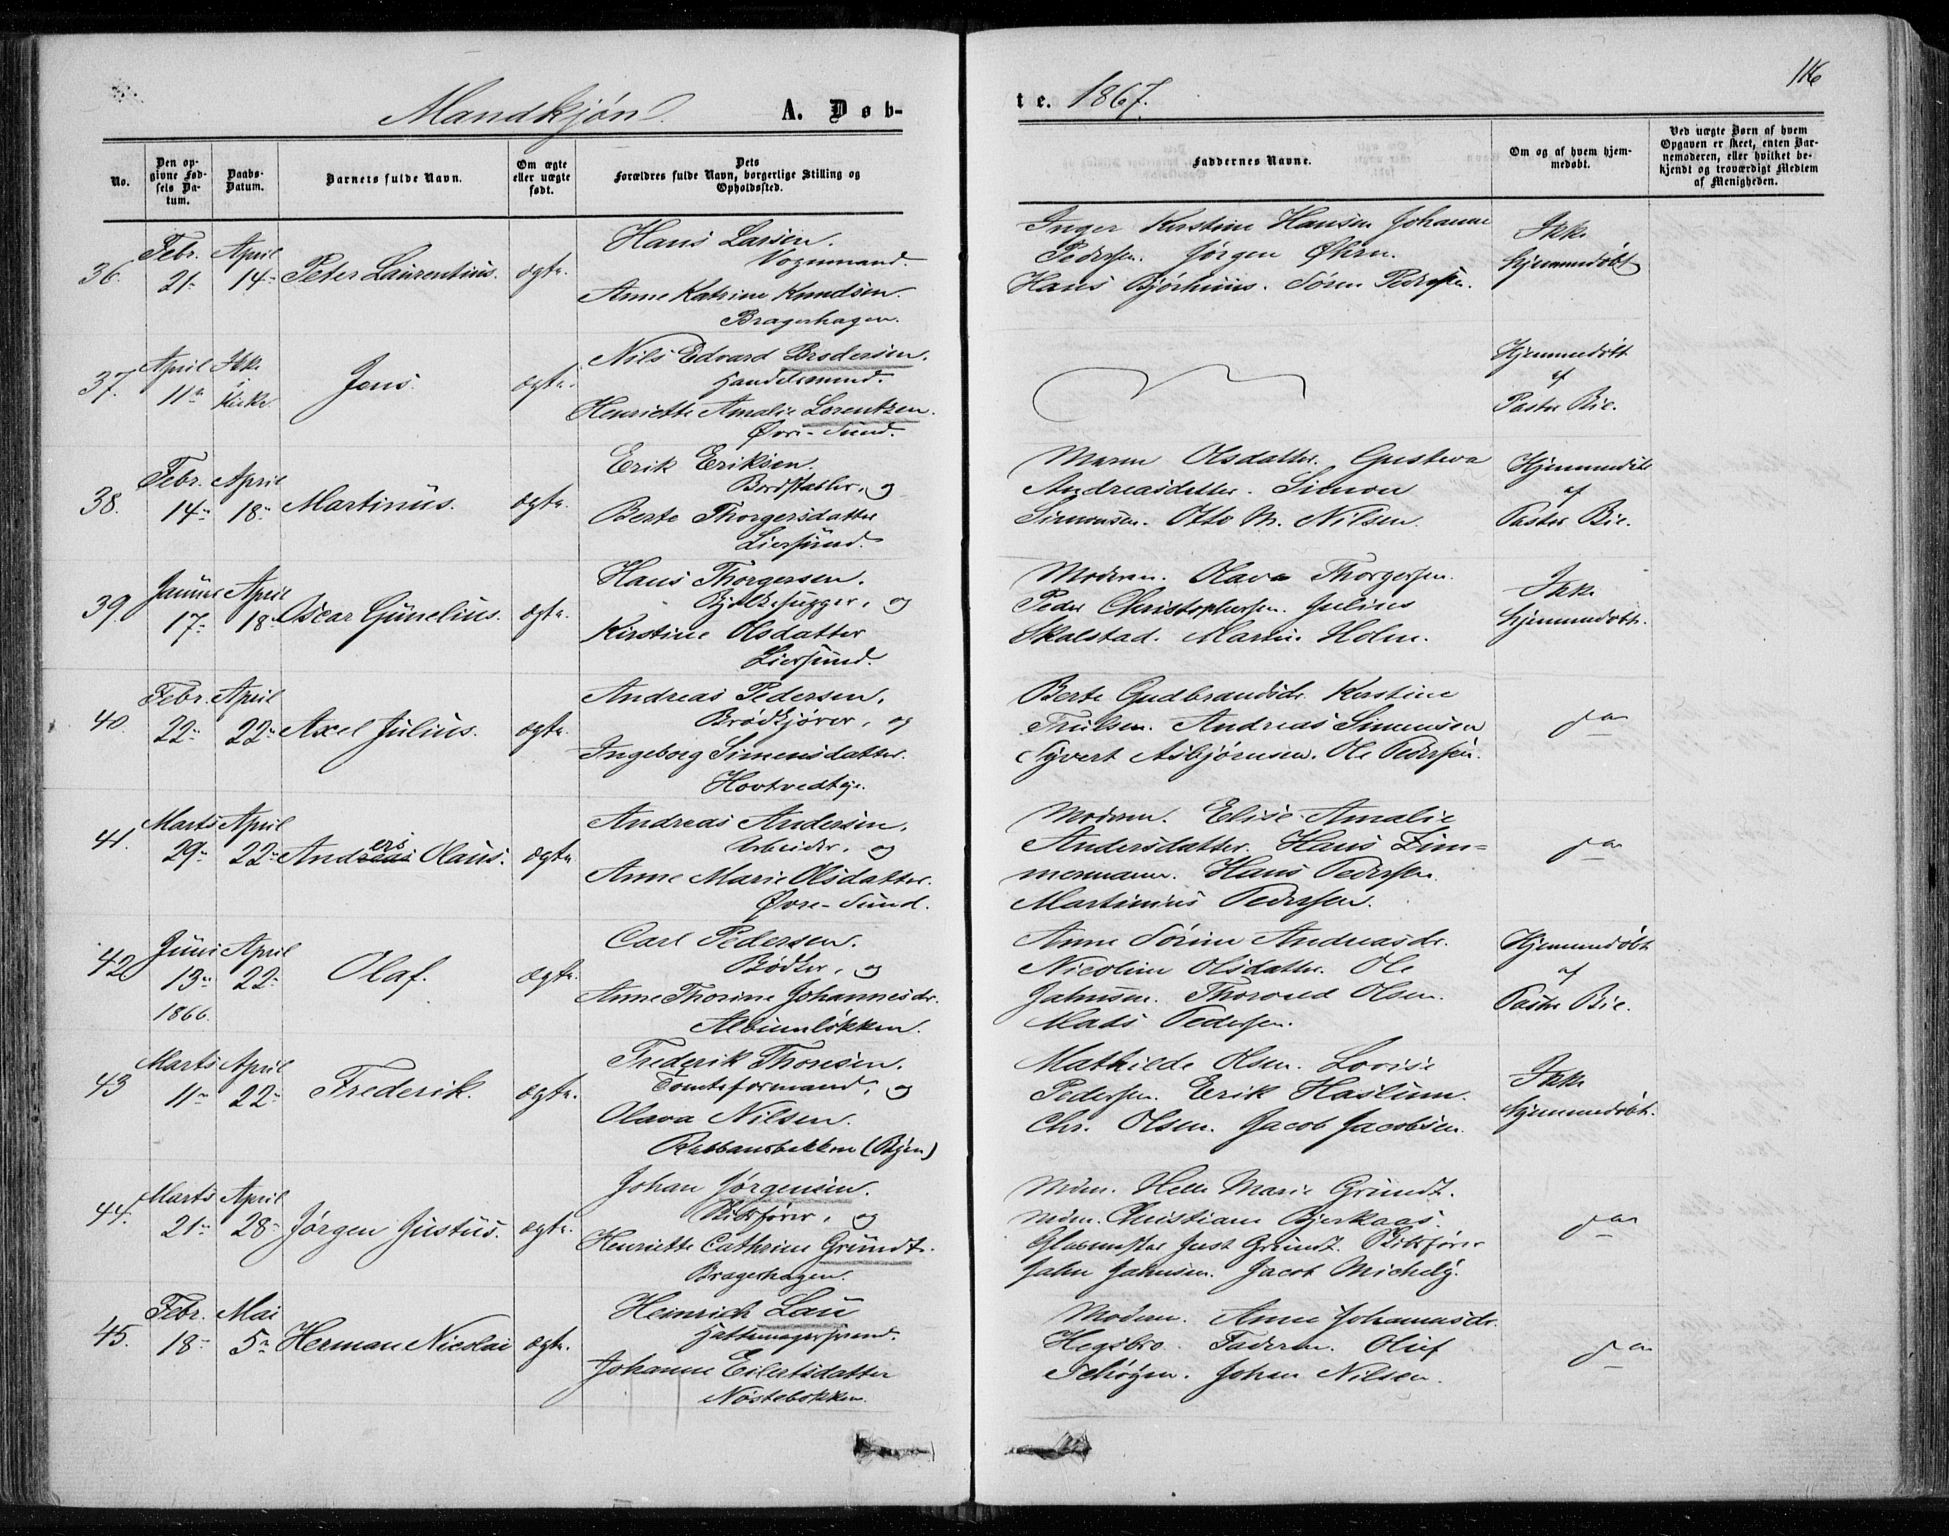 Mandkjøn. A. Døb-
No.
Den opgivne Fødsels Datum.
Daabs-Datum.
Barnets fulde Navn.
Om ægte eller uægte født.
Dets Forældres fulde Navn, borgerlige Stilling og Opholdssted.
36. Febr. 21 April 14 Peter Laurentius. ægte.
Hans Larsen.
Vognmand.
Anne Katrine Knudsen.
Bragerhagen.
37. April 11 Ikke i Kirke Jens. ægte.
Nils Edvard Brodersen.
Handelsmand.
Henriette Amalie Lorentzen.
Øvre-Sund.
38. Febr. 14 April 18 Martinus. ægte.
Erik Eriksen.
og
Berte Thorgersdatter
Liersund.
39. Januar 17 April 18 Oscar Gunelius. ægte.
Hans Thorgersen.
Bjelkehugger, og
Kirstine Olsdatter
Liersund.
40. Febr. 22 April 22 Axel Julius. ægte.
Andreas Pedersen,
Brødkjører, og
Ingeborg Simensdatter.
Hovtvedteje.
41. Marts 29 April 22 Andreas ers Olaus. ægte.
Andreas Andersen,
Arbeider, og
Anne Marie Olsdatter.
Øvre-Sund.
42. Juni 13 1866. April 22 Olaf. ægte.
Carl Pedersen.
Bødker, og
Anne Thorine Johannesdr.
Albumløkken.
43 Marts 11 April 22 Frederik. ægte.
Frederik Thoresen,
Tomteformand, og
Olava Nilsen.
(Byen)
44. Marts 21 April 28 Jørgen Justus. ægte.
Johan Jørgensen.
og
Henriette Cathrine Gründt.
Bragerhagen.
45. Febr. 18 Mai 5 Herman Nicolai ægte.
Heinrich Lau
Hattemagersvend.
Johanne Eilertsdatter
Nøstebakken.
116
te. 1867.
Faddernes Navne.
Om og af hvem hjemmedøbt.
Ved uægte Børn af hvem Opgaven er skeet, enten Barnemoderen, eller hvilket bekjendt og troværdigt Medlem af Menigheden.
Inger Kirstine Hansen Johanne
Pedersen. Jørgen Øhrn.
Hans Bjørhuus. Søren Pedersen.
Ikke
hjemmedøbt
Hjemmedøbt
af
Pastor Bie.
Maren Olsdatter. Gustava
Andreasdatter. Simon
Simonsen. Otto M. Nilsen.
Hjemmedøbt
af
Pastor Bie.
Moderen. Olava Thorgersen.
Peder Christophersen. Julius
Skalstad. Martin Holm.
Ikke
hjemmedøbt.
Berte Gudbrandsdr. Kirstine
Trulsen. Andreas Simensen
Syvert Asbjørnsen. Ole Pedersen.
Moderen. Elise Amalie
Andersdatter. Hans Zim=
mermann. Hans Pedersen.
Martinius Pedersen.
Anne Sørine Andreasdr.
Nicoline Olsdatter. Ole
Jahnsen. Thorvald Olsen.
Mads Pedersen.
Hjemmedøbt
af
Pastor Bie.
Mathilde Olsen. Lovise
Pedersen. Erik Haslum.
Chr. Olsen. Jacob Jacobsen.
Ikke
hjemmedøbt.
Mdm. Helle Marie Gründt.
Mdm. Christiane Bjerkaas.
Just Gründt.
Jahn Jahnsen. Jacob Michels.
Moderen. Anne Johannesdr.
Hegsbro. Faderen. Oluf
Schøyen. Johan Nilsen.